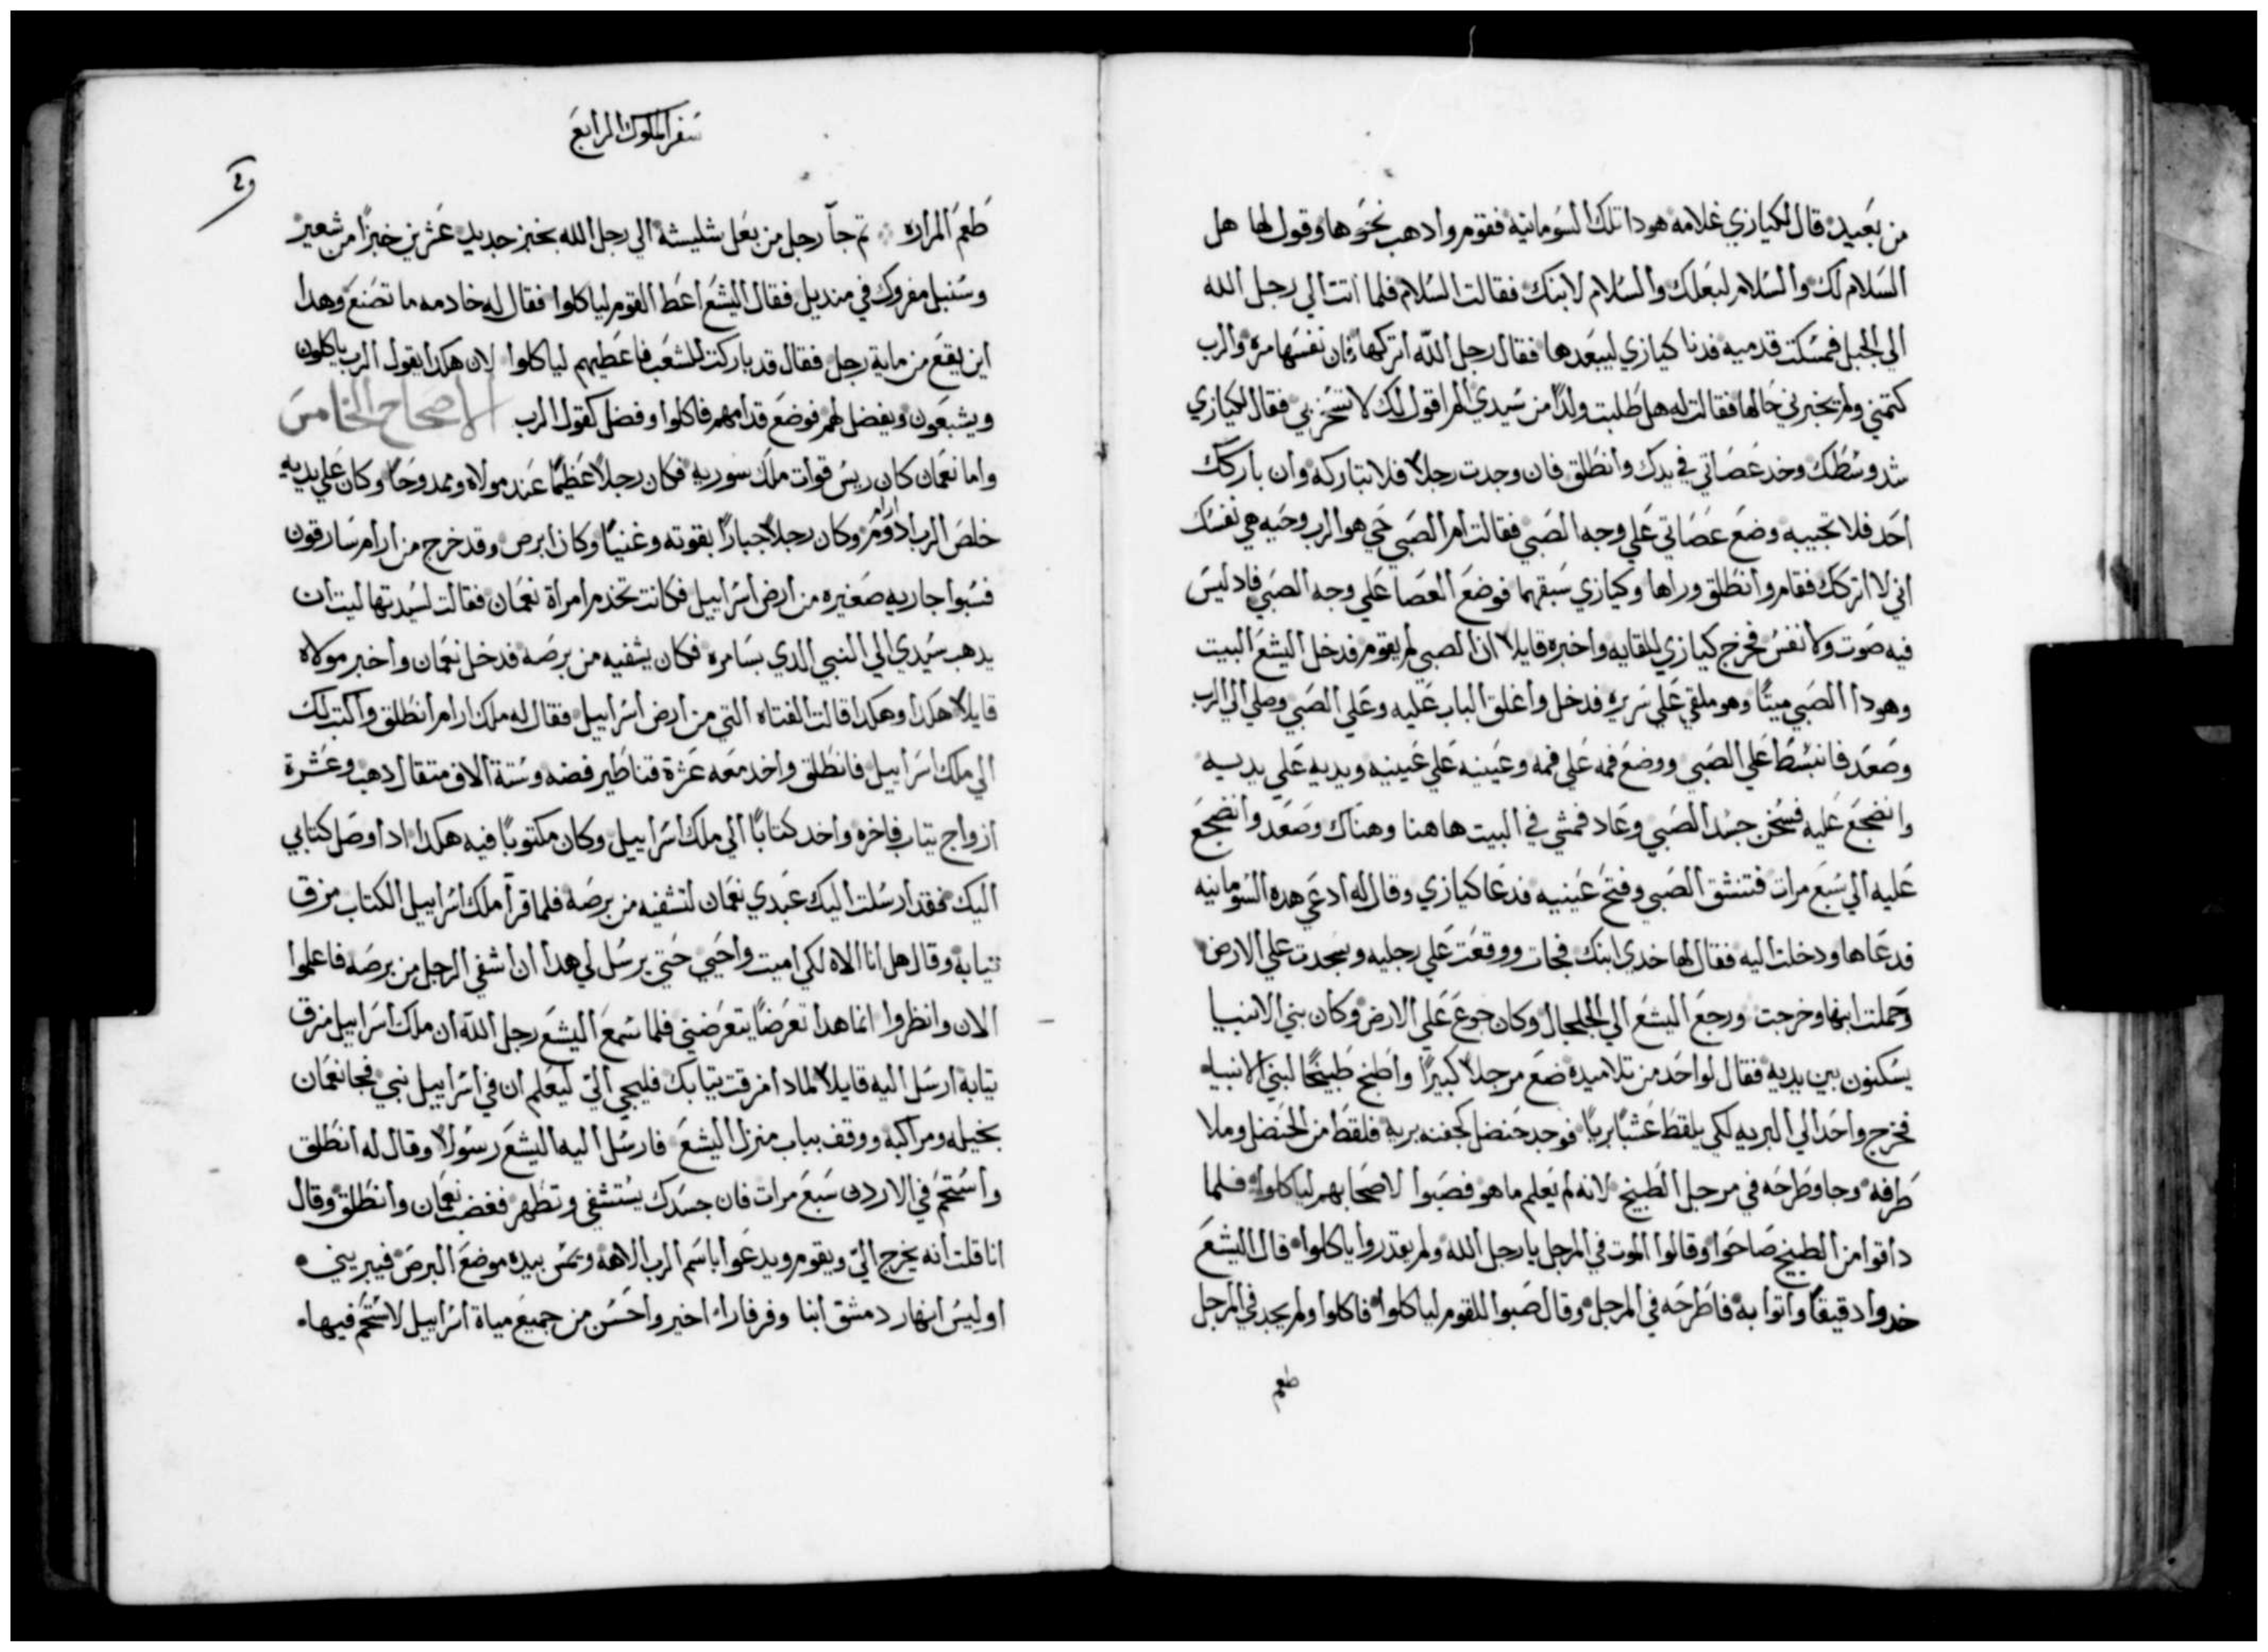 من بعيد قال لكيازي غلامه هودا تلك السومانية فقوم وادهب نحوها وقول لها هل
السلام لك والسلام لبعلك والسلام لابنك فقالت السلام فلما اتت الي رجل الله
الي الجبل فمسكت قدميه فدنا كيازي ليبعدها فقال رجل الله اتركها فان نفسها مرة والرب
كتمني ولم يخبرني حالها فقالت له هل طلبت ولدًا من سيدي الم اقول لك لا تسخر بي فقال لكيازي
شد وسطك وخد عصاتي في يدك وانطلق فان وجدت رجلاً فلا تباركه وان باركك
احد فلا تجيبه وضع عصاتي علي وجه الصبي فقالت ام الصبي حي هو الرب وحيه هي نفسك
اني لا اتركك فقام وانطلق وراها وكيازي سبقهما فوضع العصا علي وجه الصبي فاد ليس
فيه صوت ولا نفس فخرج كيازي للقايه واخبره قايلا ان الصبي لم يقوم فدخل اليشع البيت
وهودا الصبي ميتًا وهو ملقي علي سريره فدخل واغلق الباب عليه وعلي الصبي وصلي الي الرب
وصعد فانبسط علي الصبي ووضع فمه علي فمه وعينيه علي عينيه ويديه علي يديه
وانضجع عليه فسخن جسد الصبي وعاد فمشي في البيت هاهنا وهناك وصعد وانضجع
عليه الي سبع مرات فتنشق الصبي وفتح عينيه فدعا كيازي وقال له ادعي هده السومانيه
فدعاها ودخلت اليه فقال لها خدي ابنك فجات ووقعت علي رجليه وسجدت علي الارض
وحملت ابنها وخرجت ورجع اليشع الي الجلجال وكان جوع علي الارض وكان بني الانبيا
يسكنون بين يديه فقال لواحد من تلاميده ضع مرجلاً كبيرًا واطبخ طبيخًا لبني الانبيا
فخرج واحد الي البريه لكي يلقط عشبًا بريًا فوجد حنضل كجفنه بريه فلقط من الحنضل وملا
طرفه وجا وطرحه في مرجل الطبيخ لانه لم يعلم ما هو فصبوا لاصحابهم لياكلوا فلما
داقوا من الطبيخ صاحوا وقالوا الموت في المرجل يا رجل الله ولم يقدروا ياكلوا قال اليشع
خدوا دقيقًا واتوا به فاطرحه في المرجل وقال صبوا للقوم لياكلوا فاكلوا ولم يجد في المرجل
طعم
سفر الملوك الرابع
طعم المراره تم جآ رجل من بعل شليشه الي رجل الله بخبز جديد عشرين خبزًا من شعير
وسنبل مفروك في منديل فقال اليشع اعط القوم لياكلوا فقال له خادمه ما تصنع وهدا
اين يقع من ماية رجل فقال قد باركت للشعب فاعطيهم لياكلوا لان هكدا يقول الرب ياكلون
ويشبعون ويفضل لهم فوضع قدامهم فاكلوا وفضل كقول الرب الاصحاح الخامس
واما نعمان كان ريس قوات ملك سوريه فكان رجلاً عظيمًا عند مولاه وممدوحًا وكان علي يديه
خلص الرب ادوم ارام وكان رجلاً جبارًا بقوته وغنيًا وكان ابرص وقد خرج من ارام سارقون
فسبوا جاريه صغيره من ارض اسراييل فكانت تخدم امراة نعمان فقالت لسيدتها ليت ان
يدهب سيدي الي النبي الدي بسامره فكان يشفيه من برصه فدخل نعمان واخبر مولاه
قايلاً هكدا وهكدا قالت الفتاه التي من ارض اسراييل فقال له ملك ارام انطلق واكتب لك
الي ملك اسراييل فانطلق واخد معه عشرة قناطير فضه وستة الاف متقال دهب وعشرة
ازواج تياب فاخره واخد كتابًا الي ملك اسراييل وكان مكتوبًا فيه هكدا ادا وصل كتابي
اليك فقد ارسلت اليك عبدي نعمان لتشفيه من برصه فلما قرآ ملك اسراييل الكتاب مزق
تيابه وقال هل انا الاه لكي اميت واحيي حتي يرسل لي هدا ان اشفي الرجل من برصه فاعلموا
الان وانظروا انما هدا تعرضًا يتعرضني فلما سمع اليشع رجل الله ان ملك اسراييل مزق
تيابه ارسل اليه قايلاً لمادا مزقت تيابك فليجي الي ليعلم ان في اسراييل نبي فجا نعمان
بخيله ومراكبه ووقف بباب منزل اليشع فارسل اليه اليشع رسولاً وقال له انطلق
واستحم في الاردن سبع مرات فان جسدك يستشفي وتطهر فغضب نعمان وانطلق وقال
انا قلت انه يخرج الي ويقوم ويدعوا باسم الرب الاهه ويمس بيده موضع البرص فيبريني
اوليس انهار دمشق ابنا وفرفارا اخير واحسن من جميع مياة اسراييل لاستحم فيها